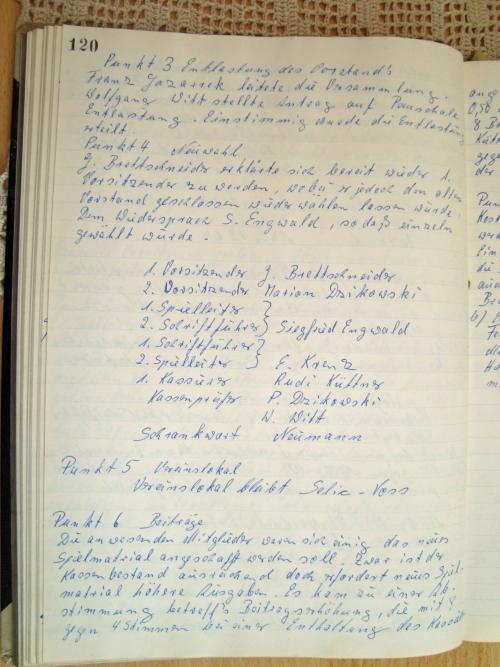 120
Punkt 3 Entlastung des Vorstand's
Franz Jozarrek leitete die Versammlung.
Wolfgang Witt stellte Antrag auf Pauschale
Entlastung. Einstimmig wurde die Entlastung
erteilt.
Punkt 4 Neuwahl
G. Brettschneider erklärte sich bereit wieder 1.
Vorsitzender zu werden, wobei er jedoch den alten
Vorstand geschlossen wiederwählen lassen würde.
Dem widersprach S. Engwald, sodaß einzeln
gewählt würde.
1. Vorsitzender G. Brettschneider
2. Vorsitzender Marian Dzikowski
1. Spielleiter
2. Schriftführer Siegfried Engwald
1. Schriftführer
2. Spielleiter E. Krenz
1. Kassierer Rudi Küttner
Kassenprüfer P. Dzikowski
W. Witt
Schrankwart Neumann
Punkt 5 Vereinslokal
Vereinslokal bleibt Selic-Voss
Punkt 6 Beiträge
Die anwesenden Mitglieder waren sich einig das neues
Spielmaterial angeschafft werden soll. Zwar ist der
Kassenbestand ausreichend doch erfordert neues Spiel-
material höhere Ausgaben. Es kam zu einer Ab-
stimmung betreff's Beitragserhöhung, die mit 9
gegen 4 Stimmen bei einer Enthaltung des